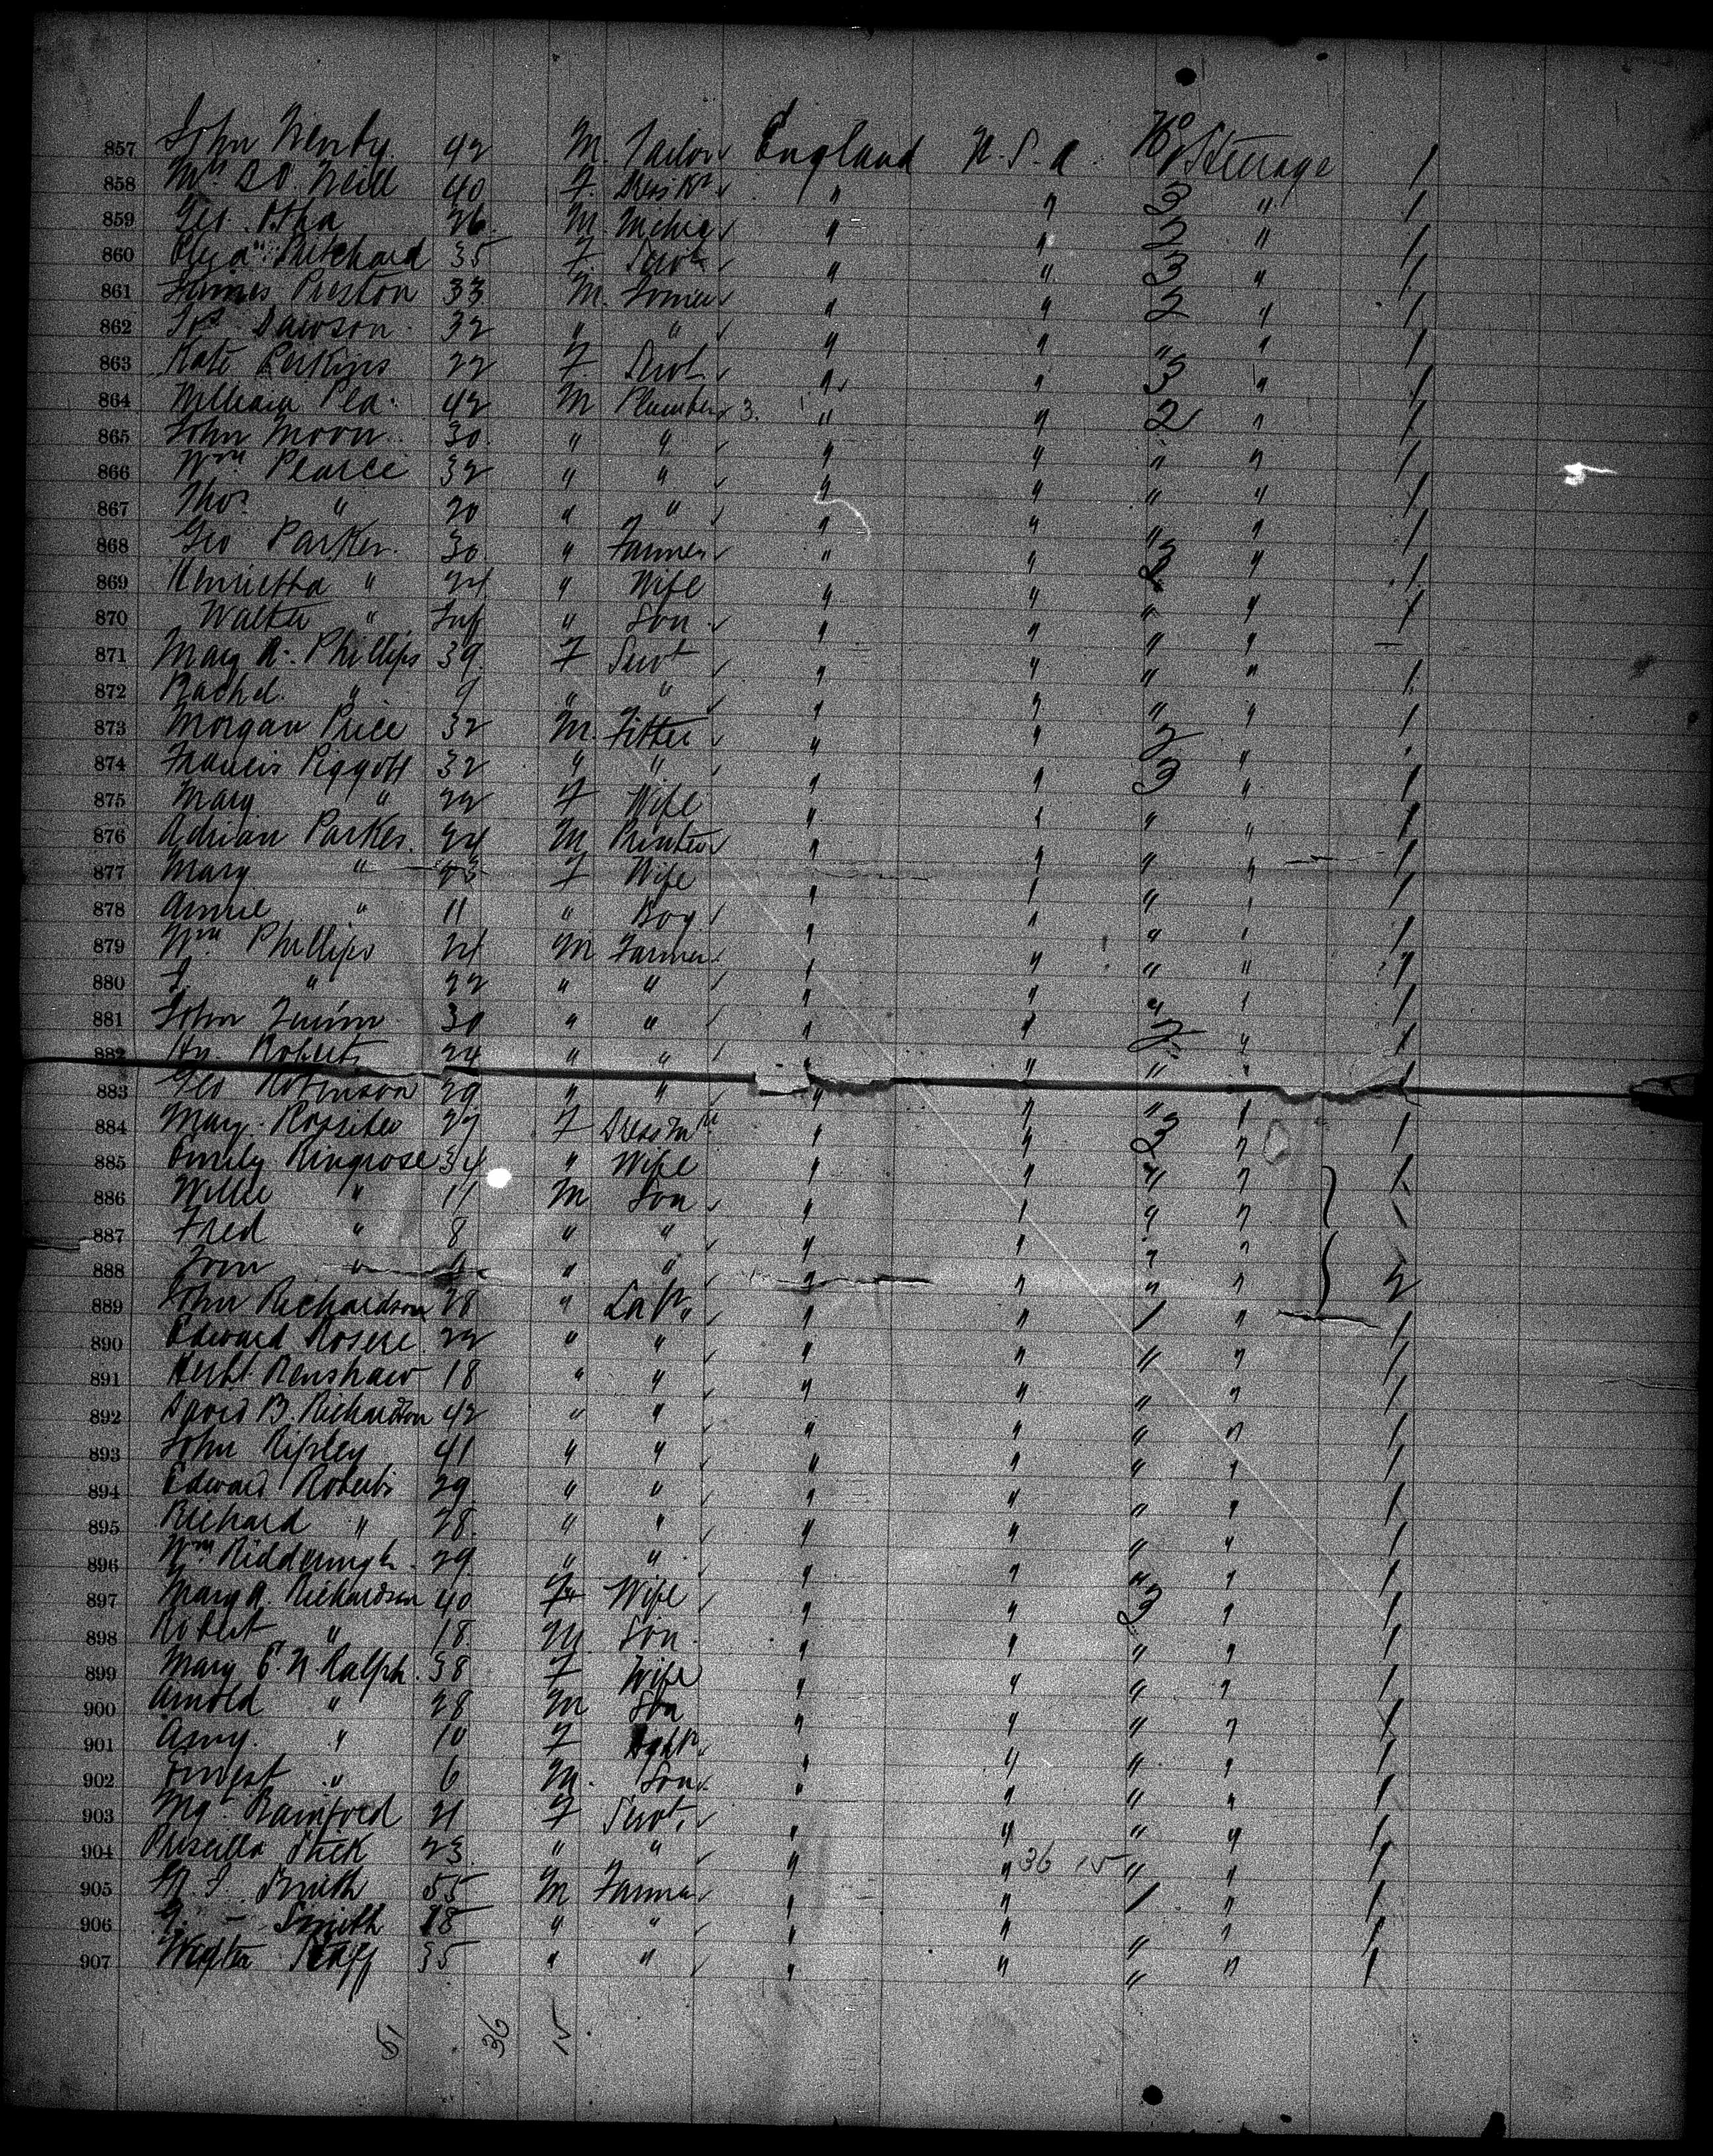 857 John Wenby 42 M. Tailor England U.S.A. No 1 Steerage 1
858 Mrs O'Neill 40 F. Dress Kr " " 3 " 1
859 Geo. 26 M. " " 2 " 1
860 Pritchard 35 F Servt " " 3 " 1
861 James Preston 33 M. " " 2 " 1
862 Jos Dawson 32 " " " " " " 1
863 Kate Perkins 22 F. Servt " " 3 " 1
864 William Plea 42 M Plumber 3. " " 2 " 1
865 John Moon 30 " " " " " " 1
866 Wm Pearce 32 " " " " " " 1
867 Thos " 20 " " " " " " 1
868 Geo Parker 30 " Farmer " " 3 " 1
869 Henrietta " 24 " Wife " " " " 1
870 Walter " Inf " Son " " " " –
871 Mary A. Phillips 39 F Servt " " " " 1
872 Rachel " 9 " " " " " " 1
873 Morgan Price 32 M. Fitter " " 2 " 1
874 Francis Piggott 32 " " " " 3 " 1
875 Mary " 22 F Wife " " " " 1
876 Adrian Parkes 24 M Printer " " " " 1
877 Mary " 23 F Wife " " " " 1
878 Annie " 11 " Boy " " " " 1
879 Wm Phillips 24 M Farmer " " " " 1
880 " 22 " " " " " " 1
881 John Quinn 30 " " " " 2 " 1
882 Hy. Roberts 24 " " " " " " 1
883 Geo Robinson 29 " " " " " " 1
884 Mary Rossiter 27 F Dress Mkr " " 3 " 1
885 Emily Ringrose 34 " Wife " " " " 1
886 Willie " 11 M Son " " " " 1
887 Fred " 8 " " " " " "
888 Tom " " " " " " " 2
889 John Richardson 28 " Labr " " 1 " 1
890 Edward Rosere 22 " " " " " " 1
891 Herbt. Renshaw 18 " " " " " " 1
892 David B. Richardson 42 " " " " " " 1
893 John Ripley 41 " " " " " " 1
894 Edward Roberts 29 " " " " " " 1
895 Richard " 28 " " " " " " 1
896 Wm 29 " " " " " " 1
897 Mary A. Richardson 40 F Wife " " 3 " 1
898 Robert " 18 M Son " " " " 1
899 Mary E. N. Ralph 38 F Wife " " " " 1
900 Arnold " 28 M Son " " " " 1
901 Amy " 10 F Dghtr " " " " 1
902 Ernest " 6 M. Son " " " " 1
903 Mgt Bamford 21 F Servt. " " " " 1
904 Priscilla Stick 23 " " " " 36 15 " " 1
905 Smith 55 M Farmer " " 1 " 1
906 Smith 18 " " " " " " 1
907 Walter 35 " " " " " " 1
51 36 15